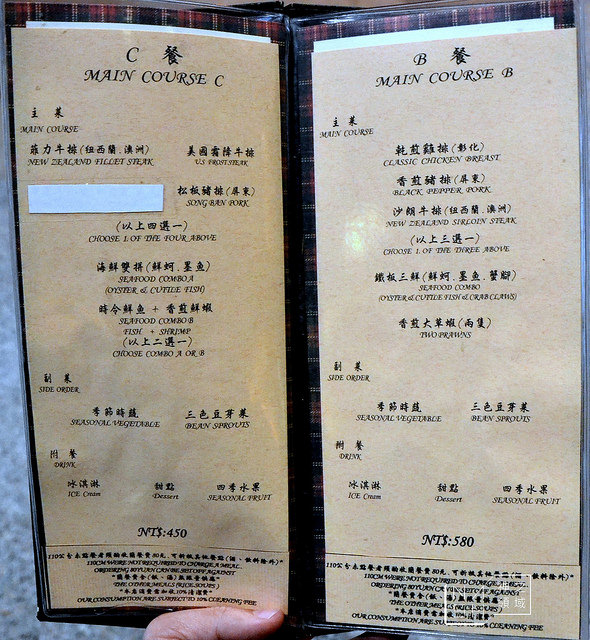 C 餐
MAIN COURSE C
主 菜
MAIN COURSE
菲力牛排(纽西蘭.澳洲)
NEW ZEALAND FILLET STEAK
美國霜降牛排
U.S FROST STEAK
松板豬排(屏東)
SONG BAN PORK
(以上四選一)
CHOOSE 1 OF THE FOUR ABOVE
海鮮雙拼(鮮蚵.墨魚)
SEAFOOD COMBO A
(OYSTER & CUTTLE FISH)
時令鮮魚 + 香煎鮮蝦
SEAFOOD COMBO B
FISH + SHRIMP
(以上二選一)
CHOOSE COMBO A OR B
副 菜
SIDE ORDER
季節時蔬
SEASONAL VEGETABLE
三色豆芽菜
BEAN SPROUTS
附 餐
DRINK
冰淇淋
ICE Cream
甜點
Dessert
四季水果
SEASONAL FRUIT
NT$:450
110CM WERE NOT REQUIRED TO CHARGE A MEAL
THE OTHER MEALS (RICE.SOUPS)
OUR CONSUMPTION ARE SUBJECT TO 10% CLEANING FEE
B 餐
MAIN COURSE B
主 菜
MAIN COURSE
乾煎雞排(彰化)
CLASSIC CHICKEN BREAST
香煎豬排(屏東)
BLACK PEPPER PORK
沙朗牛排(纽西蘭.澳洲)
NEW ZEALAND SIRLOIN STEAK
(以上三選一)
CHOOSE 1 OF THE THREE ABOVE
鐵板三鮮(鮮蚵.墨魚.蟹腳)
SEAFOOD COMBO
(OYSTER & CUTTLE FISH & CRAB CLAWS)
香煎大草蝦(兩隻)
TWO PRAWNS
副 菜
SIDE ORDER
季節時蔬
SEASONAL VEGETABLE
三色豆芽菜
BEAN SPROUTS
附 餐
DRINK
冰淇淋
ICE Cream
甜點
Dessert
四季水果
SEASONAL FRUIT
NT$:580
110CM WERE NOT REQUIRED TO CHARGE A MEAL